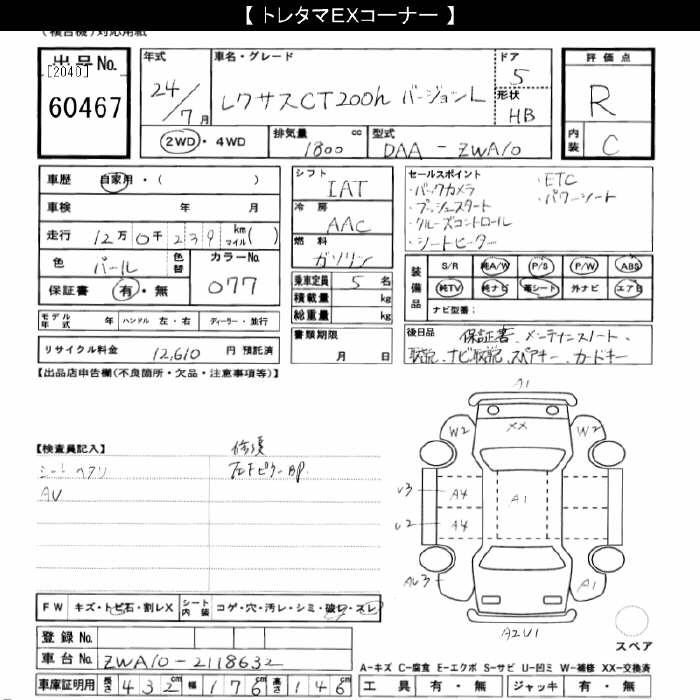 【 トレタマEXコーナー 】
(複合機)対応用紙
出品No.
[2040]
60467
年式
24/7月
車名・グレード
レクサスCT200h バージョンL
ドア
5
形状
HB
評価点
R
内装
C
2WD・4WD
排気量 cc
1800
型式
DAA-ZWA10
車歴 自家用・( )
車検 年 月
走行 12万0千239 km マイル( )
色 パール 色替 カラーNo. 077
保証書 有・無
シフト
IAT
冷房
AAC
燃料
ガソリン
乗車定員 5 名
積載量 kg
総重量 kg
セールスポイント
・バックカメラ ・ETC
・プッシュスタート ・パワーシート
・クルーズコントロール
・シートヒーター
装備品
S/R 純A/W P/S P/W ABS
純TV 純ナビ 革シート 外ナビ エアB
ナビ型番:
モデル年式 年 ハンドル 左・右 ディーラー・並行
リサイクル料金 12,610 円 預託済
書類期限
月 日
後日品 保証書、メンテナンスノート、
取説、ナビ取説、スペアキー、カードキー
【出品店申告欄(不良箇所・欠品・注意事項等)】
【検査員記入】 修復
シートヘタリ
AU
A1
W2 XX W2
U3 A4 A1
U2 A4
AU3 A1
A2U1
スペア
FW キズ・トビ石・割レX シート内装 コゲ・穴・汚レ・シミ・破レ・スレ
登録No.
車台No. ZWA10-2118632
車庫証明用 長さ 432cm 幅 176cm 高さ 146cm
A-キズ C-腐食 E-エクボ S-サビ U-凹ミ W-補修 XX-交換済
工具 有・無 ジャッキ 有・無